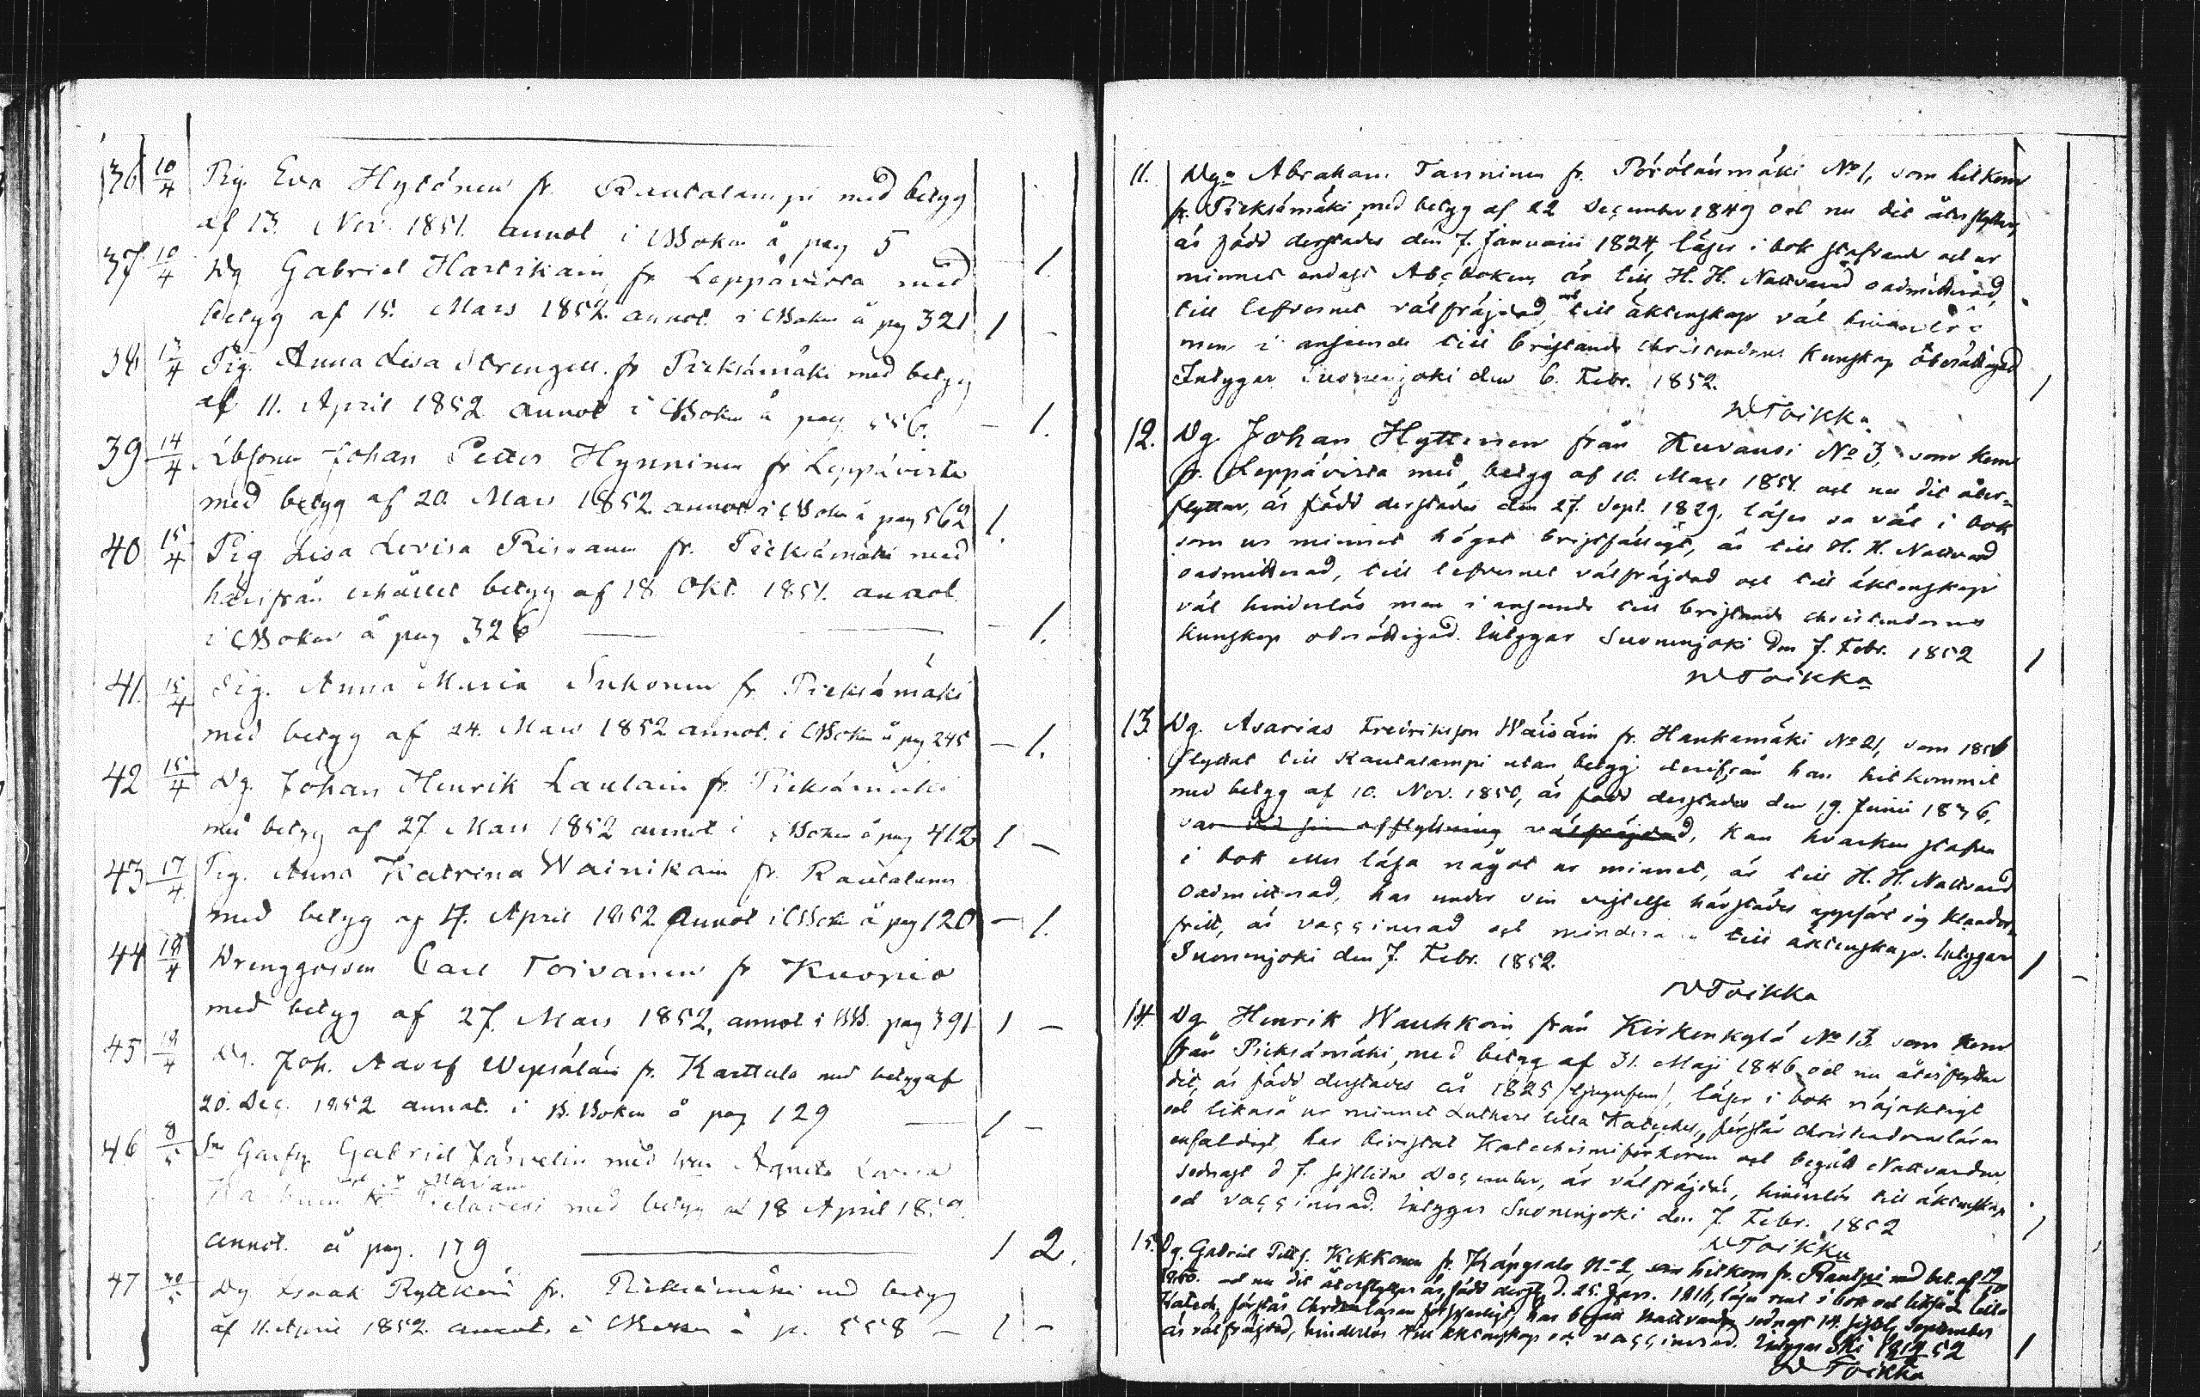 36 10/4 Pig. Eva Hytönen fr. Rautalampi med betyg
af 13. Nov. 1851. annot i BBoken å pag 5 — 1.
37 10/4 Dg Gabriel Hartikain fr Leppävirta med
betyg af 15. Mars 1852. annot. i BBoken å pag 321 1 -
38 13/4 Pig. Anna Lisa Strengell. fr Pieksämäki med betyg
af 11. April 1852 annot i BBoken å pag 556. — 1.
39 14/4 Johan Petter Hynninen fr Leppävirta
med betyg af 20. Mars 1852 annot i BBoken å pag 562 1.
40 15/4 Pig Lisa Lovisa fr. Pieksämäki med
härifrån erhållet betyg af 18 Okt. 1851. annot
i BBoken å pag 326 — 1.
41. 15/4 Pig. Anna Maria Suhonen fr. Pieksämäki
med betyg af 24. Mars 1852 annot. i BBoken å pag 245 — 1.
42 15/4 Dg. Johan Henrik Lautain fr. Pieksämäki
med betyg af 27 Mars 1852 annot i BBoken å pag 412 1 —
43 17/4 Pig. Anna Katrina Wainikain fr. Rautalam
med betyg af 17. April 1852 annot i BBoken å pag 120 — 1.
44 18/4 Drenggossen Carl Toivanen fr Kuopio
med betyg af 27. Mars 1852, annot i BB. pag 391 1 —
45 18/4 Dg. Joh. Adolf Wepsäläin fr. Karttula med betyg af
20. Dec. 1852 annot. i B. Boken å pag 129 — 1 -
46 8/5 Gabriel Järvelin med Agneta Lovisa
Mariana
Pielavesi med betyg af 18 April
annot. å pag. 179 — 1 2.
47 30/5 Dg Isaak Ryttkön fr. Pieksämäki med betyg
af 11. April 1852. annot. i BBoken å p. 558 — 1 -
11. Dg. Abraham Tanninen fr. Pörölänmäki No 1, som hitkom
fr. Pieksämäki med betyg af 22 December 1849 och nu dit återflyttar,
är född derstädes den 7. Januarii 1824, läser i bok stafvande och ur
minnet endast Abcboken, är till H. H. Nattvard oadmitterad,
till lefvernet välfräjdad, och till äktenskap väl hinderlös
men i anseende till bristande christendoms kunskap oberättigad
Intygar Suonenjoki den 6. Febr. 1852. 1
Toikka
12. Dg. Johan Hyttinen från Kuvansi No 3, som kom
fr. Leppävirta med betyg af 10. Mars 1851. och nu dit åter-
flyttar, är född derstädes den 27. Sept. 1829, läser så väl i bok
som ur minnet högst bristfälligt, är till H. H. Nattvard
oadmitterad, till lefvernet välfräjdad och till äktenskap
väl hinderlös men i anseende till bristande christendoms
kunskap oberättigad. Intygar Suonenjoki den 7. Febr. 1852 1
Toikka
13. Dg. Asarias Fredriksson Wäisäin fr. Haukamäki No 21, som
flyttat till Rautalampi utan betyg derifrån han hitkommit
med betyg af 10. Nov. 1850, är född derstädes den 19. Junii 1836,
var vid sin afflyttning välfräjdad, kan hvarken stafva
i bok eller läsa något ur minnet, är till H. H. Nattvard
oadmitterad, har under sin vistelse härstädes uppfört sig klander-
fritt, är vaccinerad och till äktenskap. Intygar
Suonenjoki den 7. Febr. 1852. 1 -
Toikka
14. Dg. Henrik Wauhkoin från Kirkonkylä No 13. som kom
från Pieksämäki, med betyg af 31. Maji 1846 och nu återflyttar
dit, är född derstädes år 1825 /tjugufem/, läser i bok
och likaså ur minnet Lutheri lilla Kateches, förstår christendomsläran
enfaldigt, har bivistat Katechismiförhören och begått Nattvarden
sednast d 7. sistlidne December, är välfräjdad, hinderlös till äktenskap
och vaccinerad. Intygar Suonenjoki den 7. Febr. 1852 1
Toikka
15. Dg. Gabriel Kekkonen fr. Käpysalo No 2, som hitkom fr. Rautpi med bet. af
1850. och nu dit återflyttar är född derst. d. 25. Jan. 1816, läser rent i bok och likaså lilla
Katech, förstår Christ.läran försvarligt, har begått Nattvarden sednast 14. sistl. September
är välfräjdad, hinderlös till äktenskap och vaccinerad. Intygar 52 1
Toikka